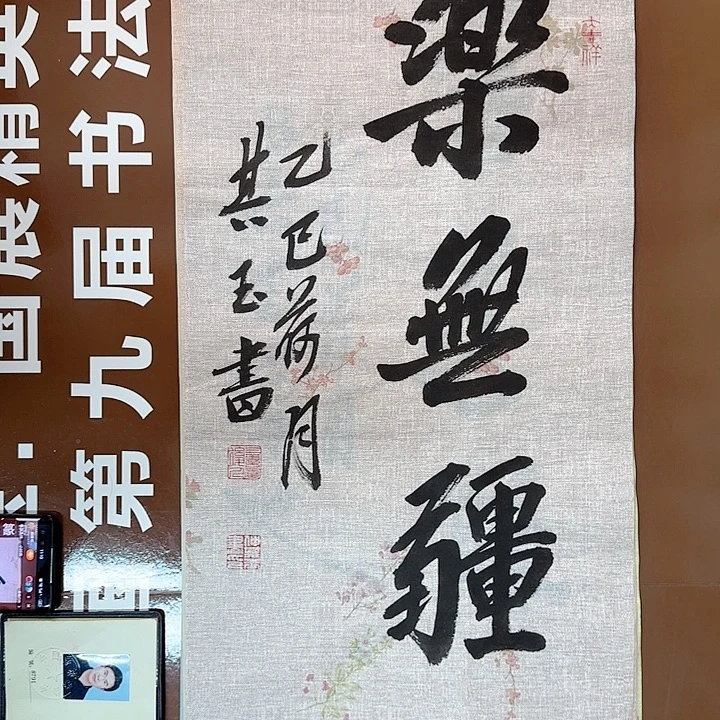 樂無疆
乙巳荷月
其玉書
第九届书法
国展精英
大吉祥